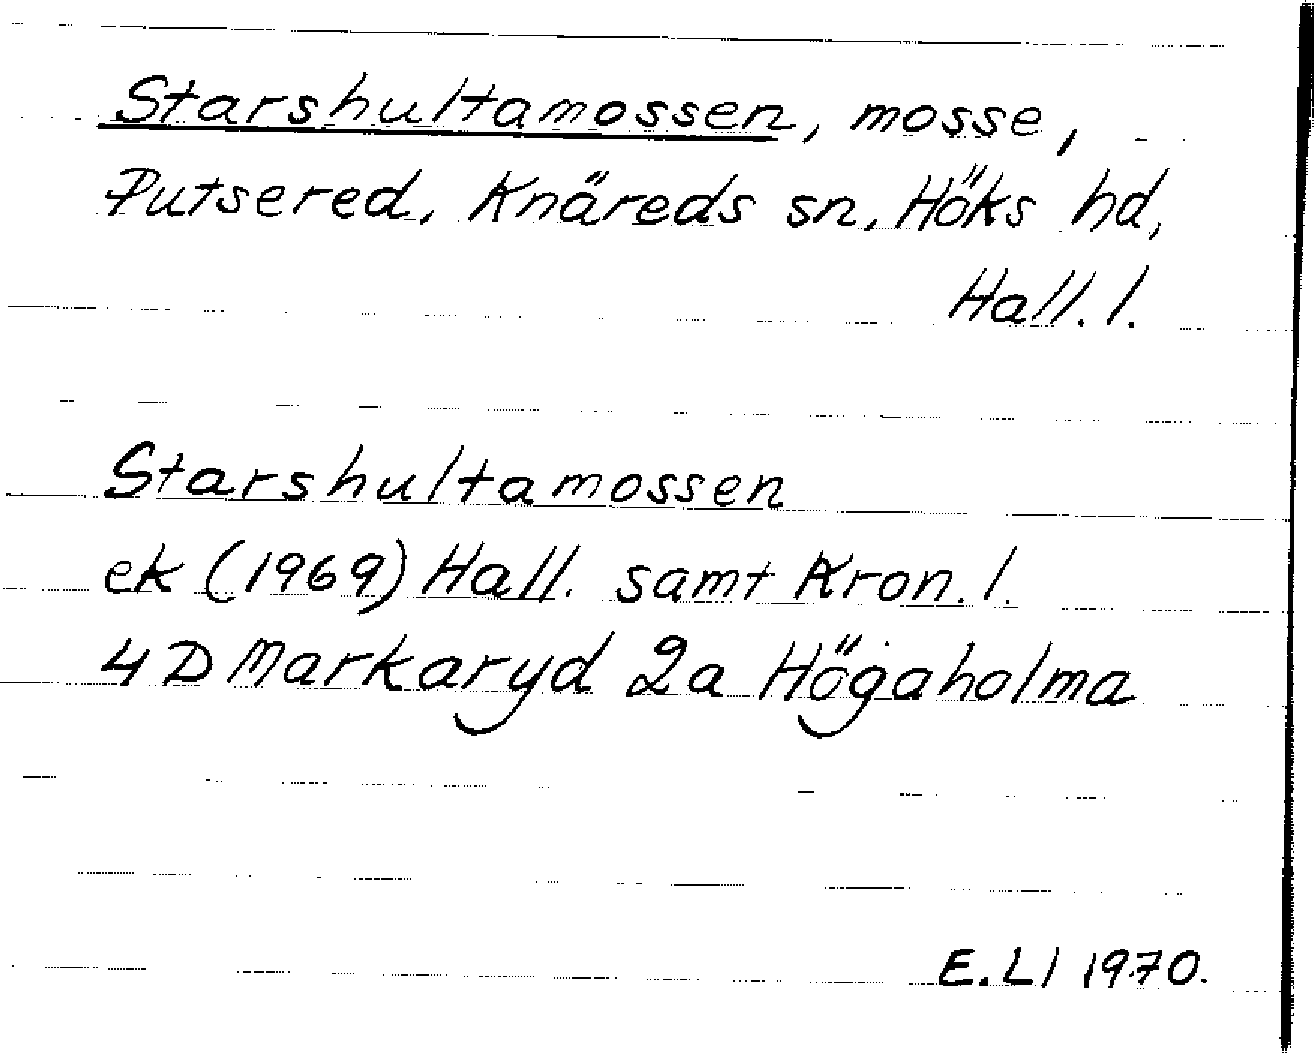 Starshultamossen, mosse,
Putsered, Knäreds sn, Höks hd,
Hall. l.
Starshultamossen
ek (1969) Hall. samt Kron. l.
4 D Markaryd 2a Högaholma
E. Ll 1970.